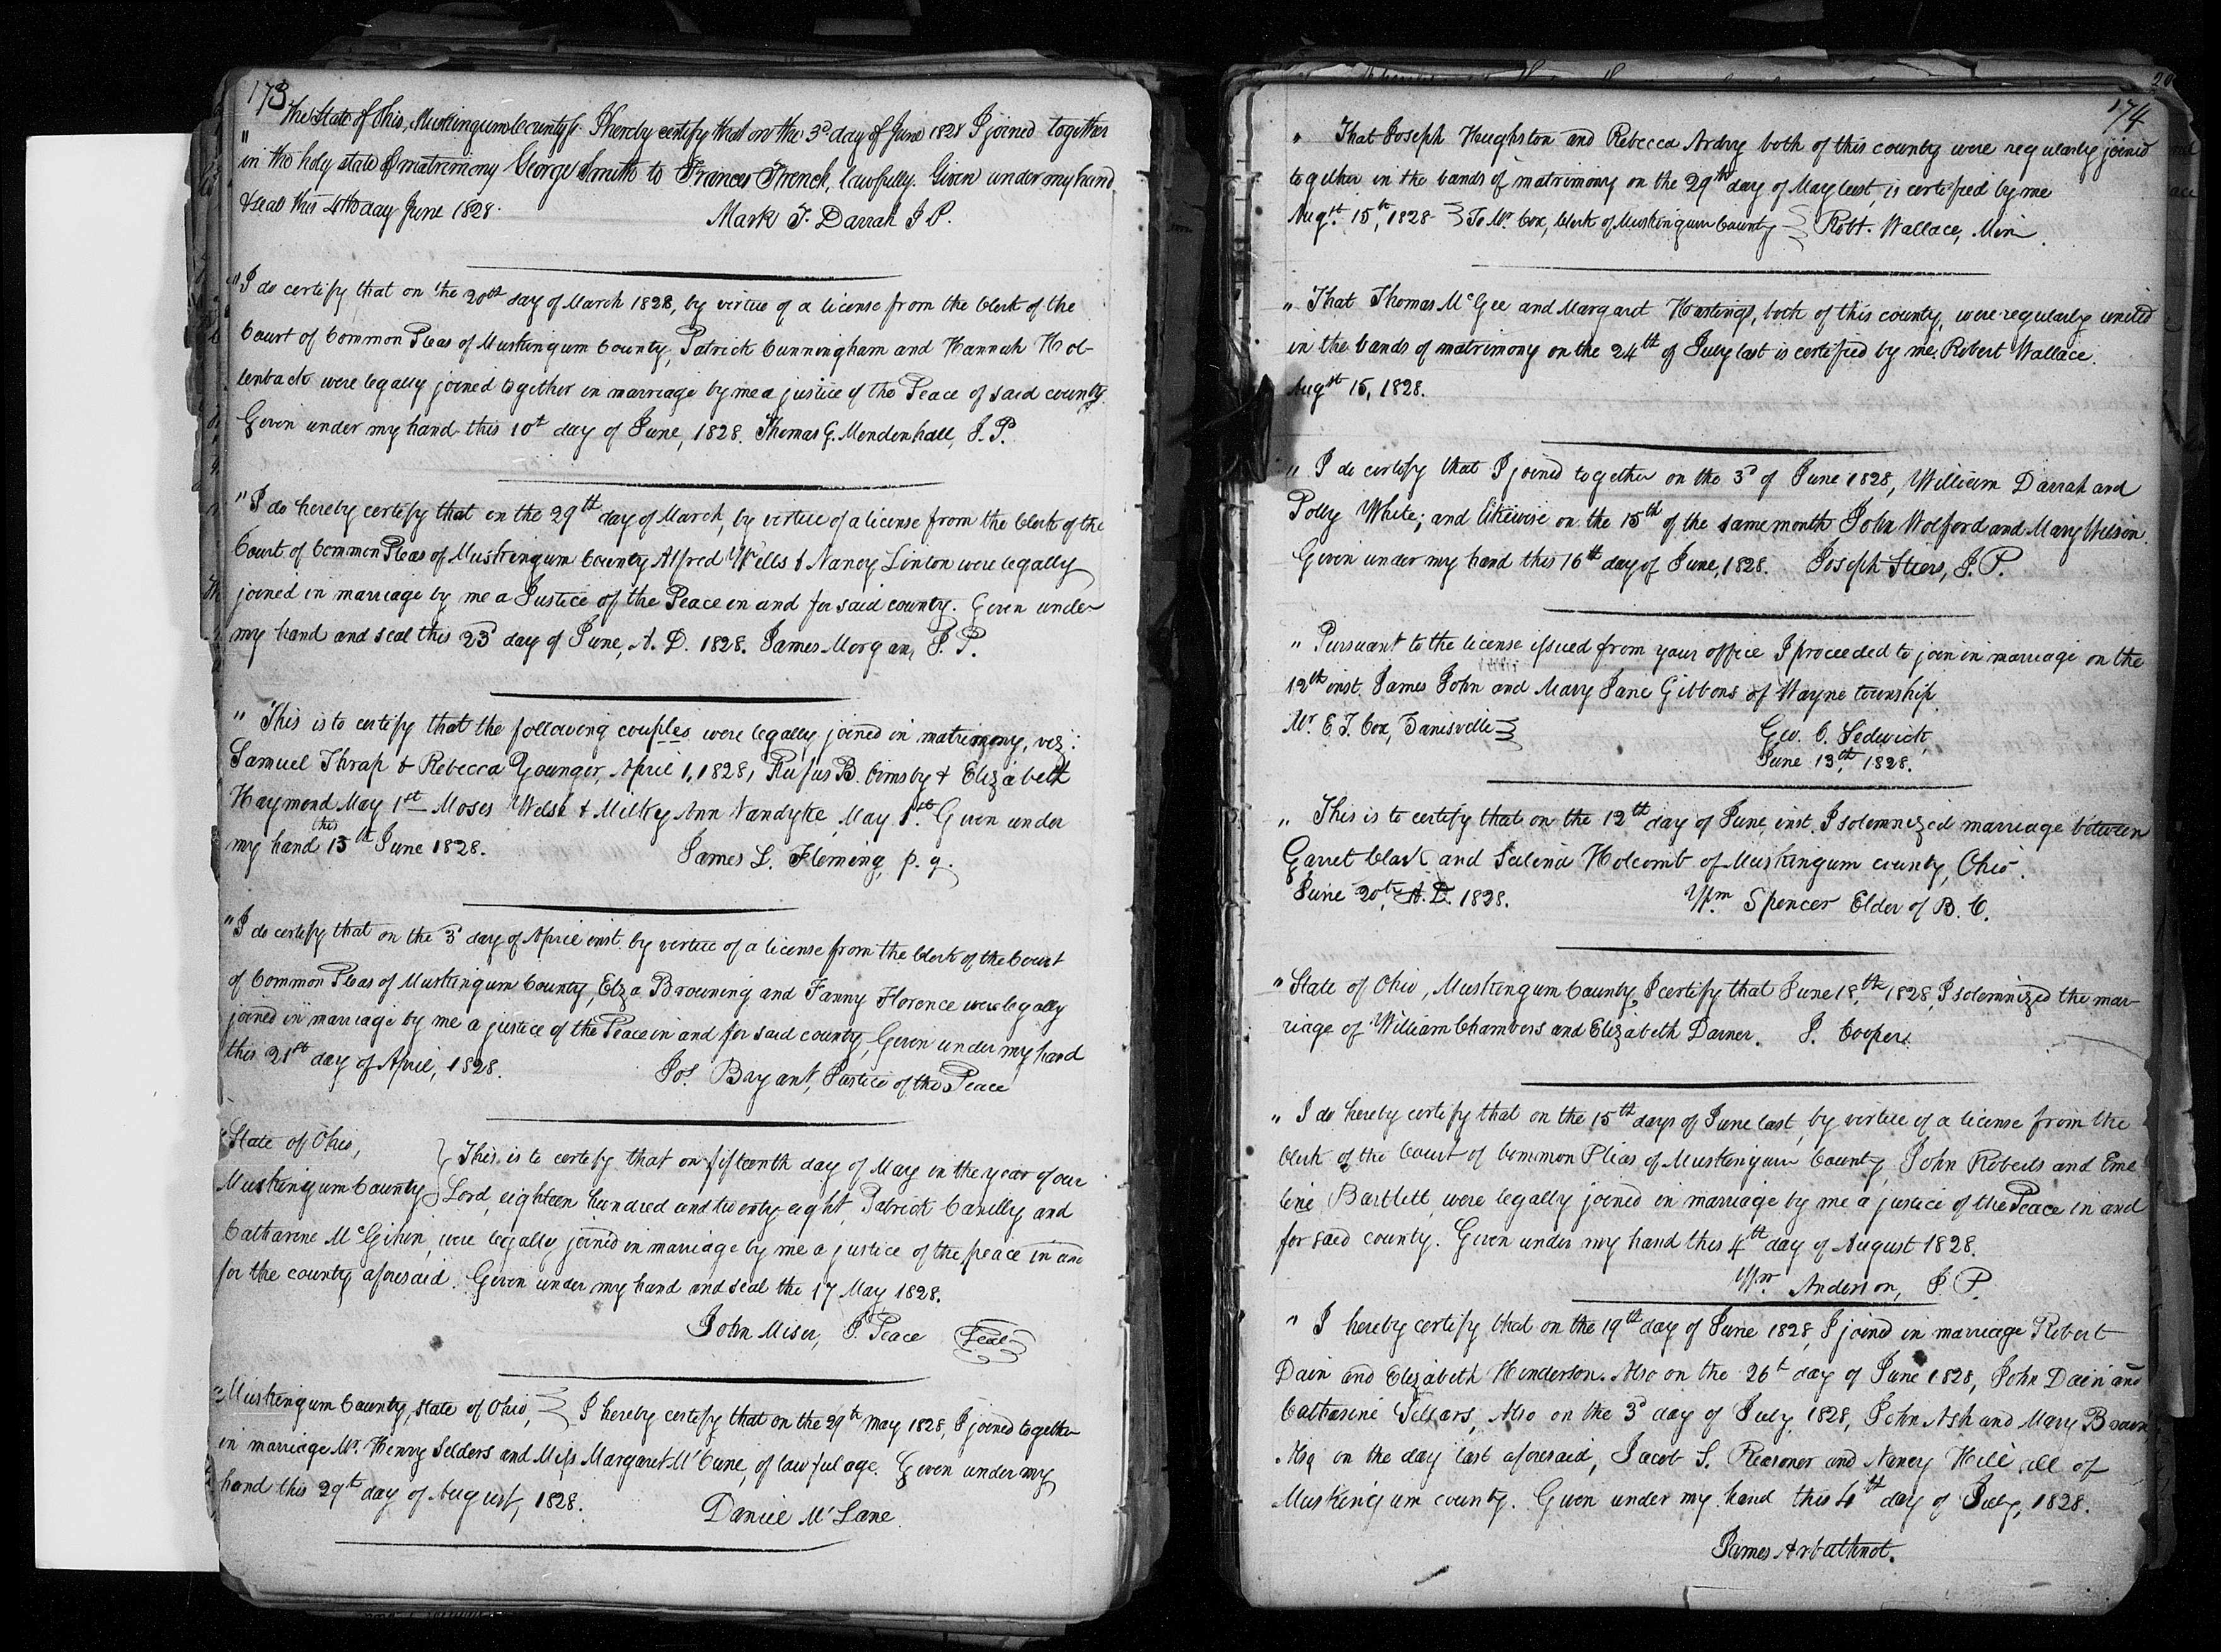 173
"The State of Ohio, Muskingum County ss. I hereby certify that on the 3d day of June 1828 I joined together
in the holy state of matrimony George Smith to Frances French, lawfully. Given under my hand
& seal this 4th day June 1828. Mark T. Darrah J P.
"I do certify that on the 20th day of March 1828, by virtue of a license from the Clerk of the
Court of Common Pleas of Muskingum County, Patrick Cunningham and Hannah Hol-
lenback were legally joined together in marriage by me a justice of the Peace of said county.
Given under my hand this 10t day of June, 1828. Thomas G. Mendenhall, J. P.
"I do hereby certify that on the 29th day of March, by virtue of a license from the Clerk of the
Court of Common Pleas of Muskingum County Alfred Wells & Nancy Linton were legally
joined in marriage by me a Justice of the Peace in and for said county. Given under
my hand and seal this 23d day of June, A. D. 1828. James Morgan, J. P.
" This is to certify that the following couples were legally joined in matrimony, viz:
Samuel Thrap & Rebecca Younger, April 1, 1828, Rufus B. Ormsby & Elizabeth
Haymond May 1st Moses Welsh & Milky Ann Vandyke May 1st. Given under
my hand this 13th June 1828. James L. Fleming, p. g.
"I do certify that on the 3d day of April inst. by virtue of a license from the Clerk of the Court
of Common Pleas of Muskingum County, Elza Browning and Fanny Florence were legally
joined in marriage by me a justice of the Peace in and for said county, Given under my hand
this 21st day of April, 1828. Jos. Bryant, Justice of the Peace
"State of Ohio, } This is to certify that on fifteenth day of May in the year of our
Muskingum County } Lord, eighteen hundred and twenty-eight, Patrick Carelly and
Catharine McGihin, were legally joined in marriage by me a justice of the peace in and
for the county aforesaid. Given under my hand and seal the 17 May 1828.
John Miser, J. Peace Seal
"Muskingum County, State of Ohio, } I hereby certify that on the 29th May 1828, I joined together
in marriage Mr. Henry Selders and Miss Margaret McCune, of lawful age. Given under my
hand this 29th day of August, 1828. Daniel McLane.
174
" That Joseph Hughston and Rebecca Ardry both of this county were regularly joined
together in the bands of matrimony on the 29th day of May last, is certified by me
Augst. 15th, 1828 } To Mr. Cox, Clerk of Muskingum County } Robt. Wallace, Min.
" That Thomas McGee and Margaret Hastings, both of this county, were regularly united
in the bands of matrimony on the 24th of July last is certified by me. Robert Wallace.
Augst 15, 1828.
" I do certify that I joined together on the 3d of June 1828, William Darrah and
Polly White; and likewise on the 15th of the same month John Wolford and Mary Wilson.
Given under my hand this 16th day of June, 1828. Joseph Stiers, J. P.
" Pursuant to the license issued from your office I proceeded to join in marriage on the
12th inst. James John and Mary Jane Gibbons of Wayne township.
Mr. E. T. Cox, Zanesville } Geo. C. Sedwick,
June 13th, 1828.
" This is to certify that on the 12th day of June inst. I solemnized marriage between
Garret Clark and Salina Holcomb of Muskingum county, Ohio.
June 20t, A. D. 1828. Wm Spencer Elder of B. C.
"State of Ohio, Muskingum County, I certify that June 18th, 1828, I solemnized the mar-
riage of William Chambers and Elizabeth Darner. J. Cooper.
" I do hereby certify that on the 15th days of June last, by virtue of a license from the
Clerk of the Court of Common Pleas of Muskingum County, John Roberts and Eme
line Bartlett were legally joined in marriage by me a justice of the Peace in and
for said county. Given under my hand this 4th day of August 1828.
Wm. Anderson, J. P.
" I hereby certify that on the 19th day of June 1828, I joined in marriage Robert
Dain and Elizabeth Henderson. Also on the 26t day of June 1828, John Dain and
Catharine Sellars, Also on the 3d day of July 1828, John Ash and Mary Brown
Also on the day last aforesaid, Jacob S. Reasoner and Nancy Hill all of
Muskingum county. Given under my hand this 4th day of July, 1828.
James Arbuthnot.